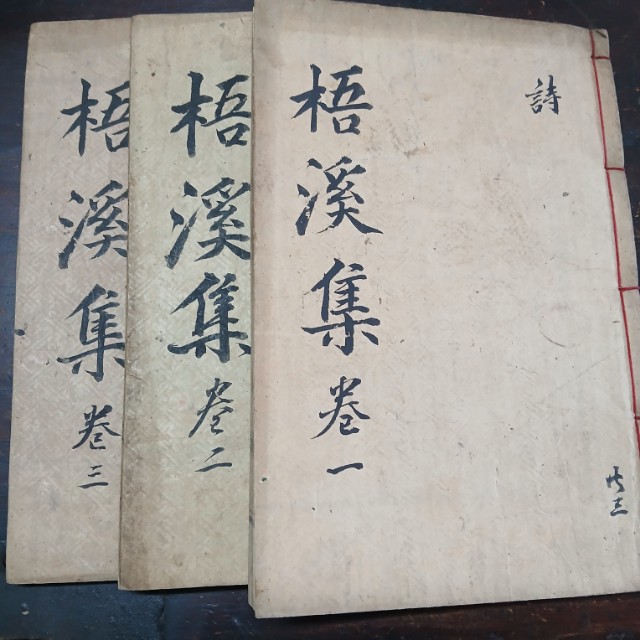 梧溪集卷一
詩
共三
梧溪集卷二
梧溪集卷三